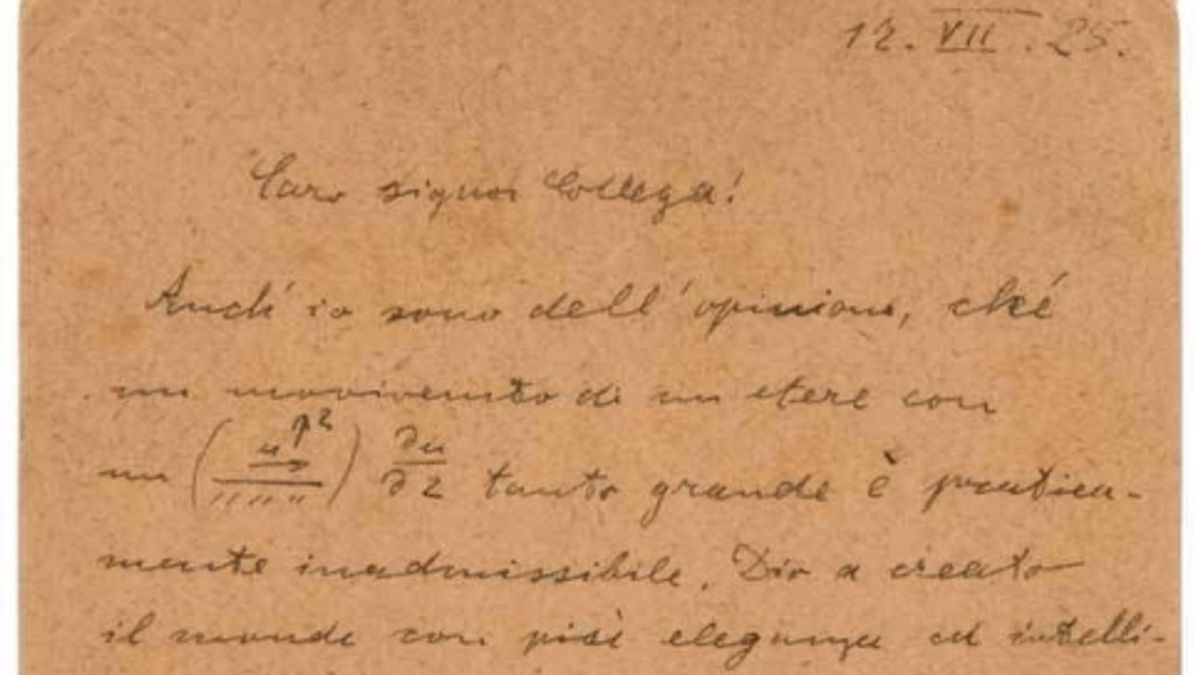 12. VII. 25.
Caro signor Collega!
Anch' io sono dell' opinione, ché
un movivemto di un etere con
un ( ) ∂u/∂z tanto grande è pratica-
mente inadmissibile. Dio a creato
il mondo con più eleganza ed intelli-